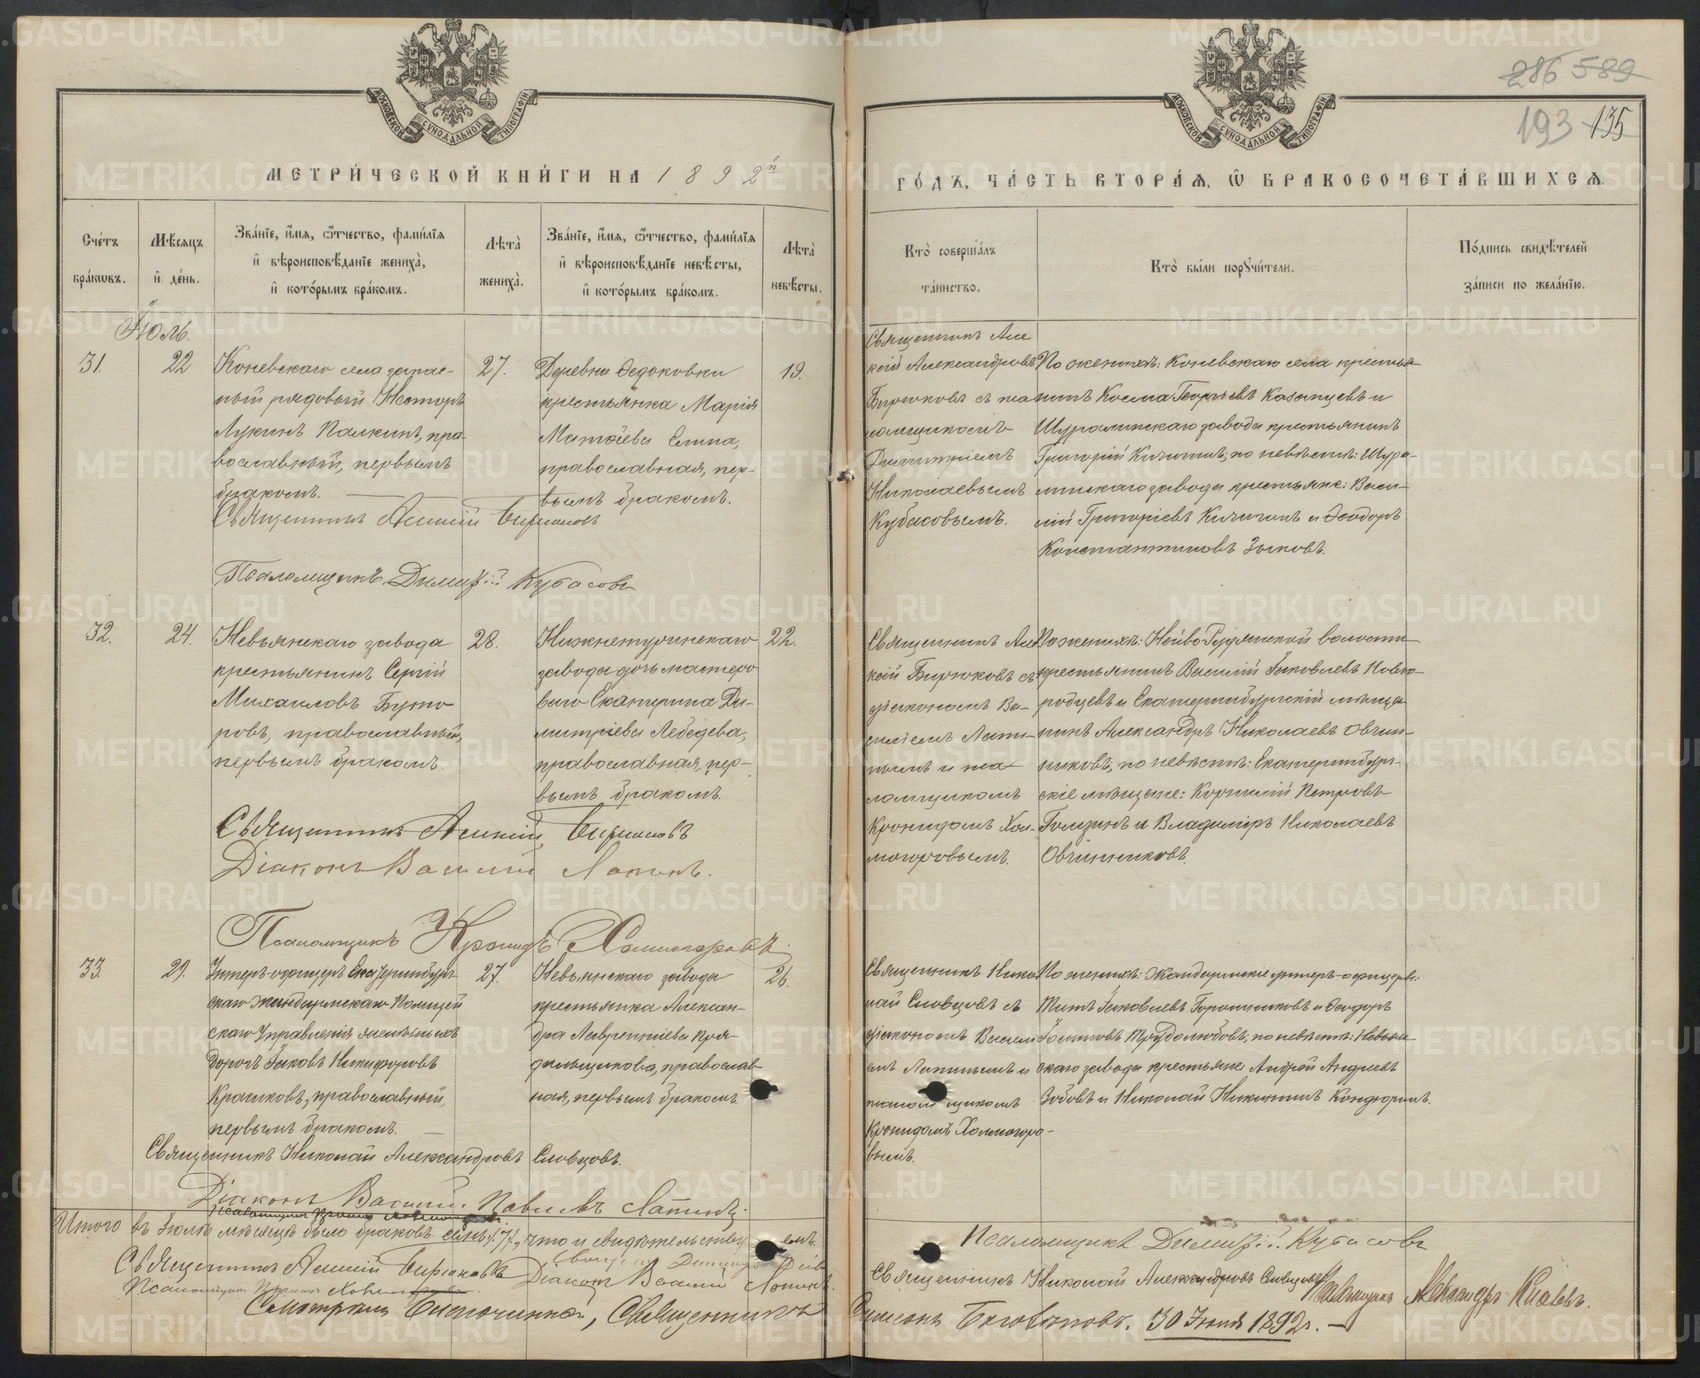 МЕТРИ́ЧЕСКОЙ КНИ́ГИ НА 1892й
ГО́ДЪ, ЧА́СТЬ ВТОРА́Ѧ, Ѽ БРАКОСОЧЕТА́ВШИХСѦ.
286 589
193 135
Сче́тъ бра́кѡвъ.
Мѣ́сѧцъ и҆ де́нь.
Зва́нїе, и҆́мѧ, ѻ҆́тчество, фами́лїѧ и҆ вѣроисповѣ́данїе жениха̀, и҆ кото́рымъ бра́комъ.
Лѣ́та жениха̀.
Зва́нїе, и҆́мѧ, ѻ҆́тчество, фами́лїѧ и҆ вѣроисповѣ́данїе невѣ́сты, и҆ кото́рымъ бра́комъ.
Лѣ́та невѣ́сты.
Кто̀ соверша́лъ та́инство.
Кто̀ бы́ли порꙋчи́тели.
По́дпись свидѣ́телей за́писи по жела́нїю.
Іюль.
31.
22
Коневскаго села запас-
ный рядовый Несторъ
Лукинъ Палкинъ, пра-
вославный, первымъ
бракомъ.
27.
Деревни Федоковки
крестьянка Марія
Матѳіева Елина,
православная, пер-
вымъ бракомъ.
19.
Священникъ Але-
ксій Александровъ
Бирюковъ съ пса-
ломщикомъ
Димитріемъ
Николаевымъ
Кубасовымъ.
По женихѣ: Коневскаго села крестья-
нинъ Косма Георгіевъ Казанцевъ и
Шуралинскаго завода крестьянинъ
Григорій Кичигинъ; по невѣстѣ: Шура-
линскаго завода крестьяне: Васи-
лій Григоріевъ Кичигинъ и Ѳеодоръ
Константиновъ Зыковъ.
Священникъ Алексій Бирюковъ
Псаломщикъ Димитрій Кубасовъ
32.
24.
Невьянскаго завода
крестьянинъ Сергій
Михаиловъ Буто-
ровъ, православный,
первымъ бракомъ.
28.
Нижнетуринскаго
завода дочь мастеро-
ваго Екатерина Ди-
митріева Лебедева,
православная, пер-
вымъ бракомъ.
22.
Священникъ Але-
ксій Бирюковъ съ
діакономъ Ва-
силіемъ Лапи-
нымъ и пса-
ломщикомъ
Кронидомъ Хол-
могоровымъ.
По женихѣ: Нейво-Рудянской волости
крестьянинъ Василій Яковлевъ Новго-
родцевъ и Екатеринбургскій мѣща-
нинъ Александръ Николаевъ Овчин-
никовъ; по невѣстѣ: Екатеринбург-
скіе мѣщане: Корнилій Петровъ
Голицынъ и Владиміръ Николаевъ
Овчинниковъ.
Священникъ Алексій Бирюковъ
Діаконъ Василій Лапинъ.
Псаломщикъ Кронидъ Холмогоровъ.
33.
29.
Унтеръ-офицеръ Екатеринбург-
скаго Жандармскаго Полицей-
скаго Управленія желѣзныхъ
дорогъ Іаковъ Никифоровъ
Крачковъ, православный,
первымъ бракомъ.
27.
Невьянскаго завода
крестьянка Алексан-
дра Лаврентіева Пря-
дильщикова, православ-
ная, первымъ бракомъ.
26.
Священникъ Нико-
лай Словцовъ съ
діакономъ Васили-
емъ Лапинымъ и
псаломщикомъ
Кронидомъ Холмогоро-
вымъ.
По женихѣ: Жандармскіе унтеръ-офицеры:
Титъ Яковлевъ Горошниковъ и Ѳеодоръ
Трудолюбовъ; по невѣстѣ: Невьян-
скаго завода крестьяне: Андрей Андреевъ
Зобовъ и Николай Никитинъ Кондюринъ.
Священникъ Николай Александровъ Словцовъ.
Діаконъ Василій Павловъ Лапинъ.
Итого въ Іюлѣ мѣсяцѣ было браковъ семь /7/, что и свидѣтельствуемъ.
Священникъ Алексій Бирюковъ
Діаконъ Василій Лапинъ
Псаломщикъ Димитрій Кубасовъ
Священникъ Николай Александровъ Словцовъ
Псаломщикъ Александръ Князевъ.
Смотрѣлъ Благочинный, Священникъ
Симеонъ Богоявленскій. 30 Іюля 1892 г.
METRIKI.GASO-URAL.RU